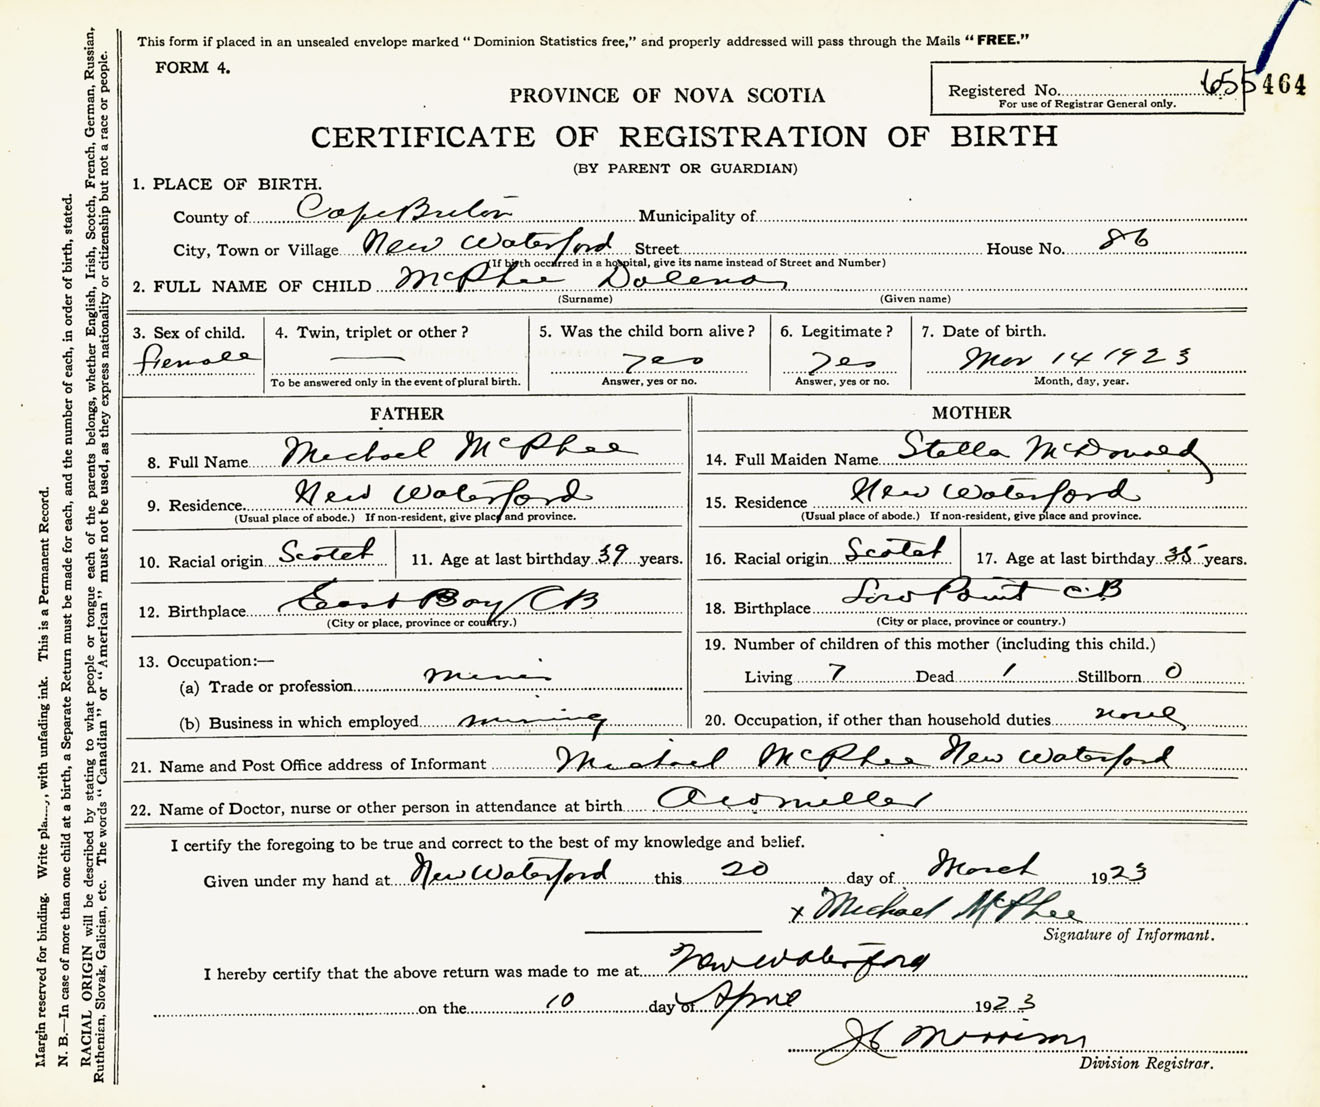 This form if placed in an unsealed envelope marked "Dominion Statistics free," and properly addressed will pass through the Mails "FREE."
FORM 4.
Registered No. 655 464
For use of Registrar General only.
PROVINCE OF NOVA SCOTIA
CERTIFICATE OF REGISTRATION OF BIRTH
(BY PARENT OR GUARDIAN)
1. PLACE OF BIRTH.
County of Cape Breton Municipality of
City, Town or Village New Waterford Street House No. 86
(If birth occurred in a hospital, give its name instead of Street and Number)
2. FULL NAME OF CHILD McPhee Dolena
(Surname) (Given name)
3. Sex of child. 4. Twin, triplet or other? 5. Was the child born alive? 6. Legitimate? 7. Date of birth.
female — yes yes Mar 14 1923
To be answered only in the event of plural birth. Answer, yes or no. Answer, yes or no. Month, day, year.
FATHER
8. Full Name Michael McPhee
9. Residence. New Waterford
(Usual place of abode.) If non-resident, give place and province.
10. Racial origin Scotch 11. Age at last birthday 39 years.
12. Birthplace East Bay CB
(City or place, province or country.)
13. Occupation:—
(a) Trade or profession miner
(b) Business in which employed mining
MOTHER
14. Full Maiden Name Stella McDonald
15. Residence New Waterford
(Usual place of abode.) If non-resident, give place and province.
16. Racial origin Scotch 17. Age at last birthday 35 years.
18. Birthplace Low Point C.B
(City or place, province or country.)
19. Number of children of this mother (including this child.)
Living 7 Dead 1 Stillborn 0
20. Occupation, if other than household duties none
21. Name and Post Office address of Informant Michael McPhee New Waterford
22. Name of Doctor, nurse or other person in attendance at birth miller
I certify the foregoing to be true and correct to the best of my knowledge and belief.
Given under my hand at New Waterford this 20 day of March 1923
x Michael McPhee
Signature of Informant.
I hereby certify that the above return was made to me at New Waterford
on the 10 day of April 1923
Morrison
Division Registrar.
Margin reserved for binding. Write with unfading ink. This is a Permanent Record.
N. B.—In case of more than one child at a birth, a Separate Return must be made for each, and the number of each, in order of birth, stated.
RACIAL ORIGIN will be described by stating to what people or tongue each of the parents belongs, whether English, Irish, Scotch, French, German, Russian,
Ruthenian, Slovak, Galician, etc. The words "Canadian" or "American" must not be used, as they express nationality or citizenship but not a race or people.